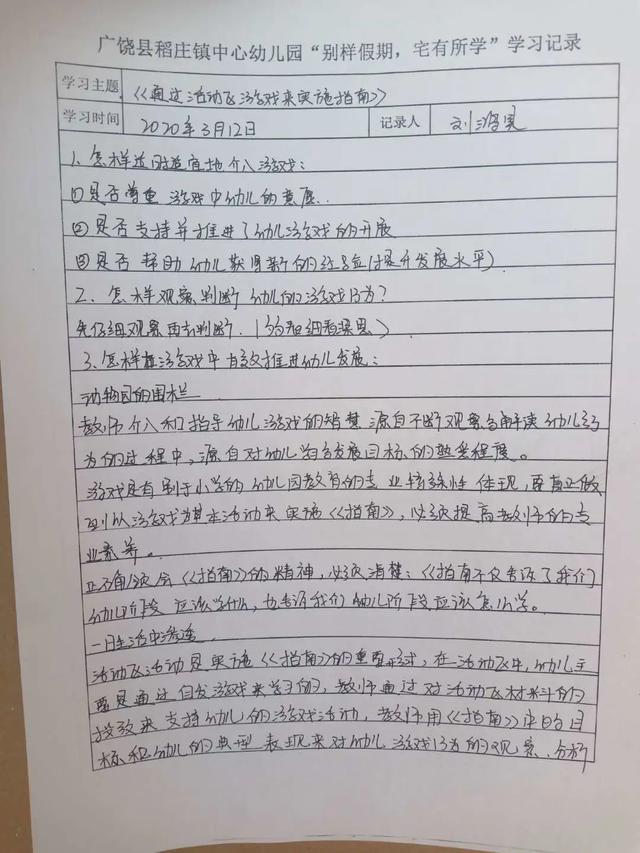 广饶县稻庄镇中心幼儿园“别样假期，宅有所学”学习记录
学习主题 《通过活动区游戏来实施指南》
学习时间 2020年3月12日 记录人 刘
1、怎样适时适宜地介入游戏：
①是否尊重游戏中幼儿的意愿．
②是否支持并推进了幼儿游戏的开展
③是否帮助幼儿获得新的经验（提升发展水平）
2、怎样观察、判断幼儿的游戏行为？
先仔细观察再去判断．（多看细看深思）
3、怎样在游戏中有效推进幼儿发展：
动物园的围栏
教师介入和指导幼儿游戏的智慧源自不断观察与解读幼儿行
为的过程中，源自对幼儿学习发展目标的熟悉程度。
游戏是有别于小学的幼儿园教育的专业特殊性体现，要真正做
到以游戏为基本活动来实施《指南》，必须提高教师的专
业素养。
正确领会《指南》的精神，必须清楚：《指南不仅告诉了我们
幼儿阶段应该学什么，也告诉我们幼儿阶段应该怎么学。
一日生活中渗透
活动区活动是实施《指南》的重要形式，在活动区中，幼儿主
要是通过自发游戏来学习的，教师通过对活动区材料的
投放来支持幼儿的游戏活动，教师用《指南》中的目
标和幼儿的典型表现来对幼儿游戏行为的观察、分析